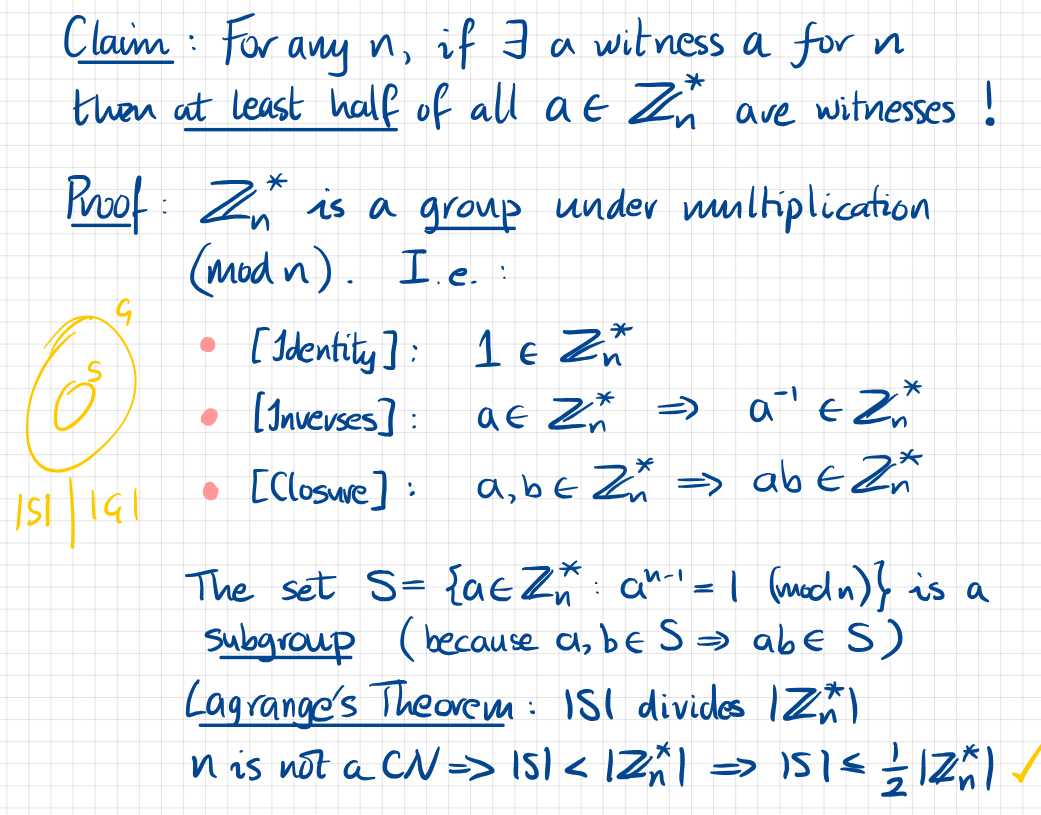 Claim : For any n, if ∃ a witness a for n
then at least half of all a ∈ ℤₙ* are witnesses !
Proof : ℤₙ* is a group under multiplication
(mod n). I.e. :
• [Identity] : 1 ∈ ℤₙ*
• [Inverses] : a ∈ ℤₙ* ⇒ a⁻¹ ∈ ℤₙ*
• [Closure] : a, b ∈ ℤₙ* ⇒ ab ∈ ℤₙ*
G
S
|S| | |G|
The set S = {a ∈ ℤₙ* : aⁿ⁻¹ = 1 (mod n)} is a
subgroup (because a, b ∈ S ⇒ ab ∈ S)
Lagrange's Theorem : |S| divides |ℤₙ*|
n is not a CN ⇒ |S| < |ℤₙ*| ⇒ |S| ≤ ½ |ℤₙ*| ✓